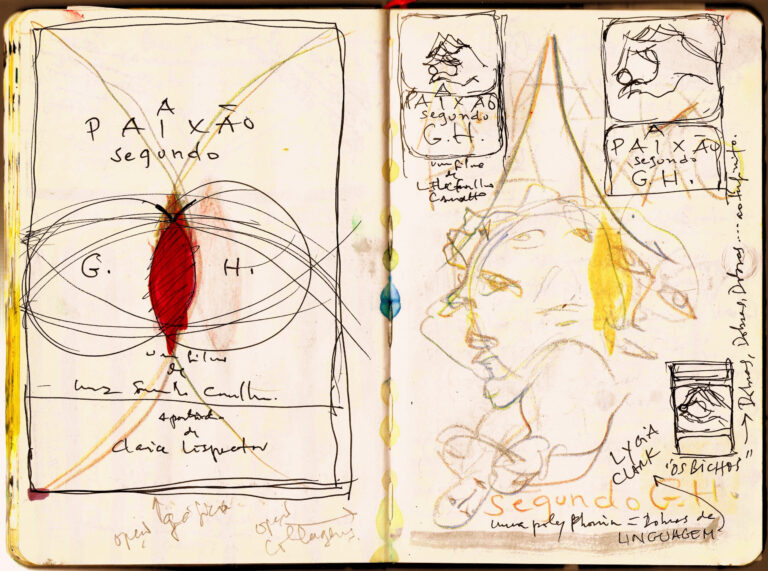 A
PAIXÃO
segundo
G. H.
um filme
de
Luiz Fernando Carvalho.
a partir
de
Clarice Lispector
opção gráfica
opção
collagens
A
PAIXÃO
segundo
G.H.
um filme
de
Luiz Fernando
Carvalho
A
PAIXÃO
segundo
G.H.
Dobras, Dobras, Dobras....
LYGIA
CLARK
"OS BICHOS"
segundo G.H.
uma polyphonia = Dobras de
LINGUAGEM